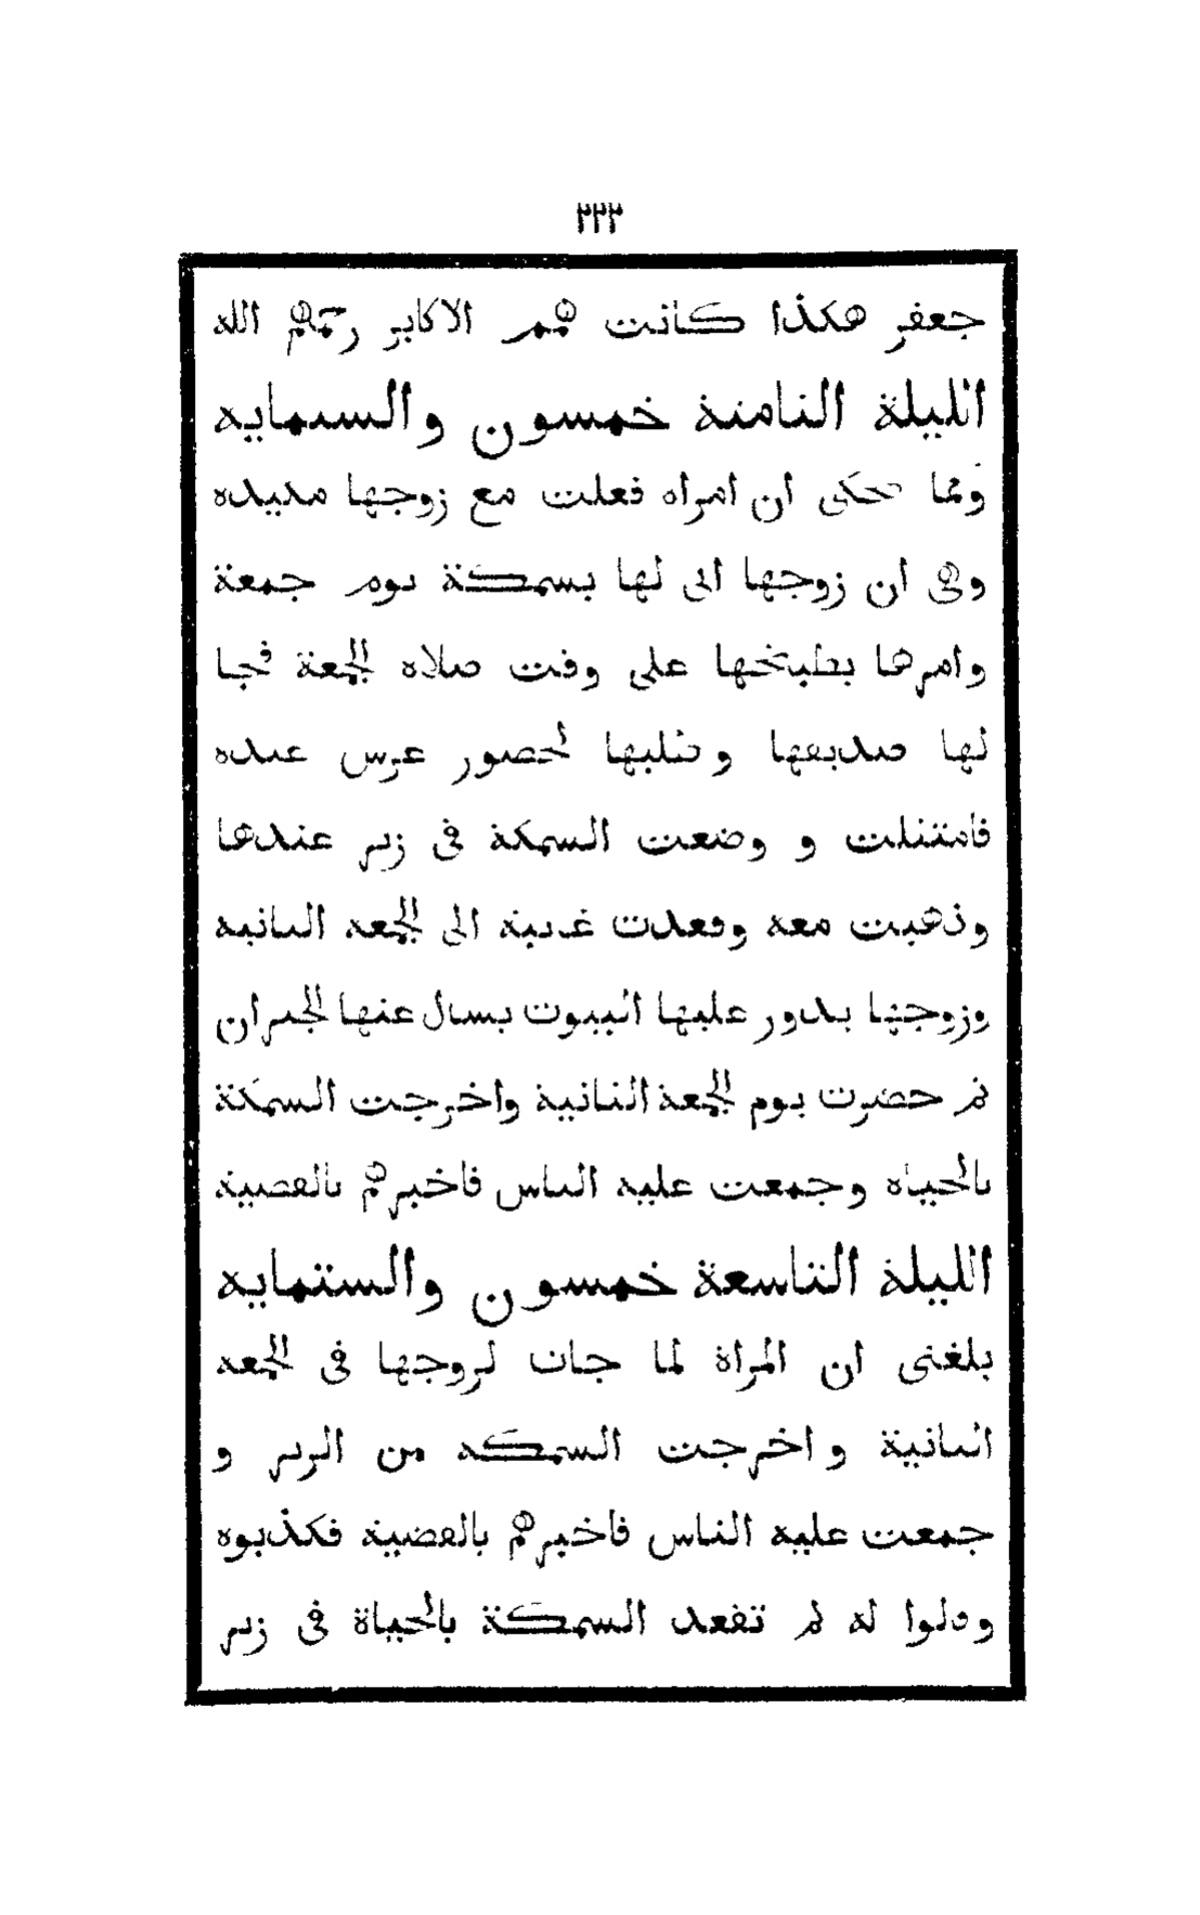 ٢٢٣
جعفر هكذا كانت همم الاكابر رحمهم الله
الليلة الثامنة خمسون والستمايه
ومما حكى ان امراه فعلت مع زوجها مكيده
وهى ان زوجها اتى لها بسمكة يوم جمعة
وامرها بطبيخها على وقت صلاه الجمعة فجا
لها صديقها وطلبها لحضور عرس عنده
فامتثلت و وضعت السمكة فى زير عندها
وذهبت معه وقعدت غايبة الى الجمعه الثانيه
وزوجها يدور عليها البيوت يسال عنها الجيران
ثم حضرت يوم الجمعة الثانية واخرجت السمكة
بالحياه وجمعت عليه الناس فاخبرهم بالقصية
الليلة التاسعة خمسون والستمايه
بلغنى ان المراة لما جات لزوجها فى الجمعه
الثانية و اخرجت السمكه من الزير و
جمعت عليه الناس فاخبرهم بالقضية فكذبوه
وقلوا له لم تقعد السمكة بالحياة فى زير